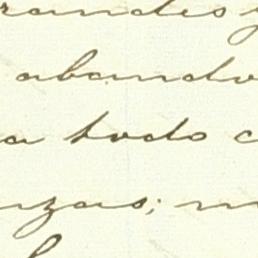 randes y
abando
a todo c
nzas; m